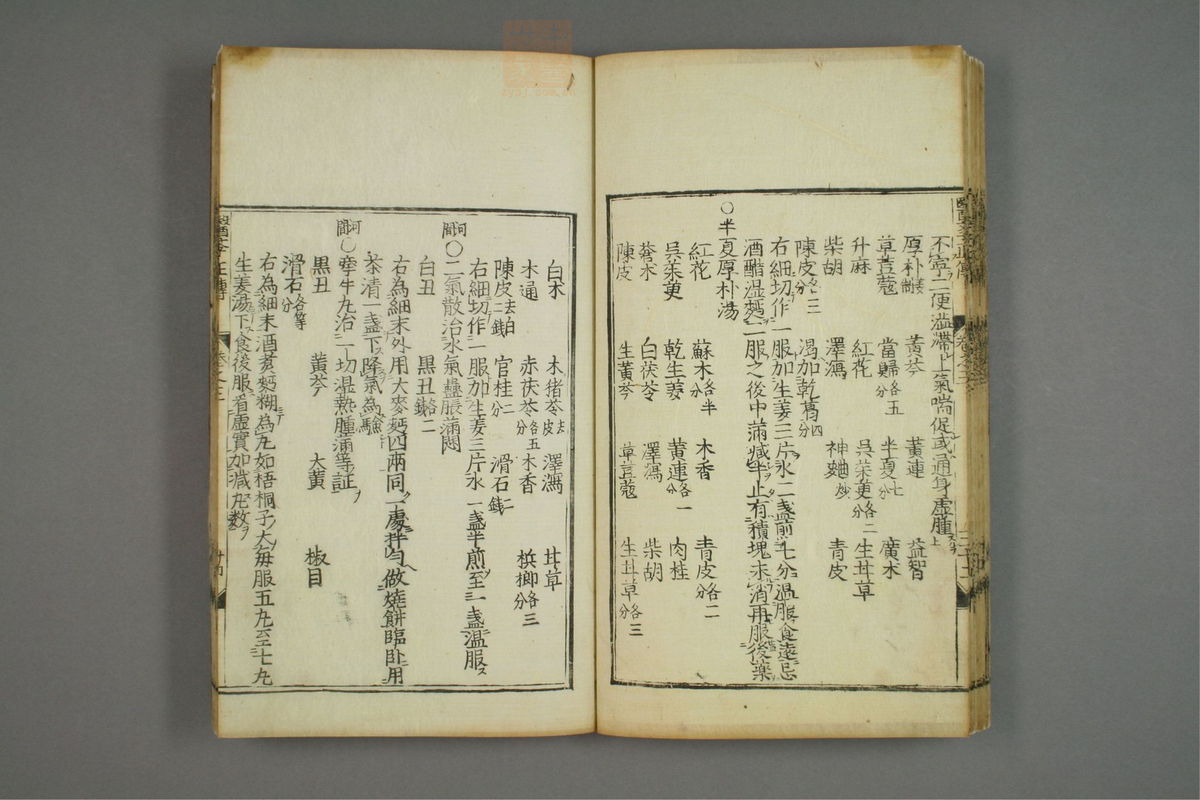 不寧二便澁滯上氣喘促或通身虛腫
厚朴 黃芩 黃連 益智
草荳蔲 當歸各五分 半夏七分 廣木
升麻 紅花 吳茱萸各二分 生甘草
柴胡 澤瀉 神麯炒 青皮
陳皮各三分 渴加乾葛四分
右細切作一服加生姜三片水二盞煎七分温服食遠忌
酒醋湿麪二服之後中滿減半止有積塊未消再服後藥
○半夏厚朴湯
紅花 蘇木各半分 木香 青皮各二分
吳茱萸 乾生姜 黃連各一分 肉桂
蒼木 白茯苓 澤瀉 柴胡
陳皮 生黃芩 草荳蔲 生甘草各三分
白木 木猪苓去皮 澤瀉 甘草
木通 赤茯苓各五分 木香 檳榔各三分
陳皮去白二錢 官桂二分 滑石二錢
右細切作一服加生姜三片水一盞半煎至一盞温服
河間○二氣散治水氣蠱脹滿悶
白丑 黑丑各二錢
右為細末外用大麥麪四兩同一處拌匀做燒餅臨卧用
茶清一盞下降氣為驗
河間○牽牛丸治一切湿熱腫滿等証
黑丑 黃芩 大黃 椒目
滑石各等分
右為細末酒煮麪糊為丸如梧桐子大每服五丸至七丸
生姜湯下食後服看虛實加減丸数